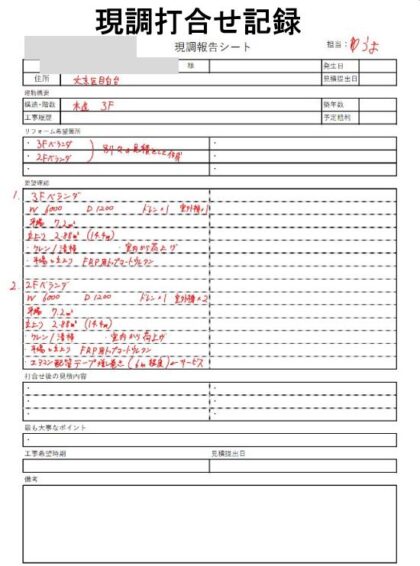 現調打合せ記録
現調報告シート
担当：ゆうま
様
発生日
住所 文京区目白台
見積提出日
建物概要
構造・階数 木造 3F
築年数
工事履歴
予定粗利
リフォーム希望箇所
・ 3Fベランダ
・ 2Fベランダ
別々に見積もとして作成
要望確認
1. 3Fベランダ
W 6000 D 1200 ドレン×1 室外機×1
平場 7.2㎡
立上り 2.88㎡ (14.4m)
・ケレン/清掃 ・室内から荷上げ
・平場と立上り FRP用トップコートウレタン
2. 2Fベランダ
W 6000 D 1200 ドレン×1 室外機×2
平場 7.2㎡
立上り 2.88㎡ (14.4m)
・ケレン/清掃 ・室内から荷上げ
・平場と立上り FRP用トップコートウレタン
・エアコン配管テープ増し巻き (6m程度)←サービス
打合せ後の見積内容
最も大事なポイント
工事希望時期
見積提出日
備考